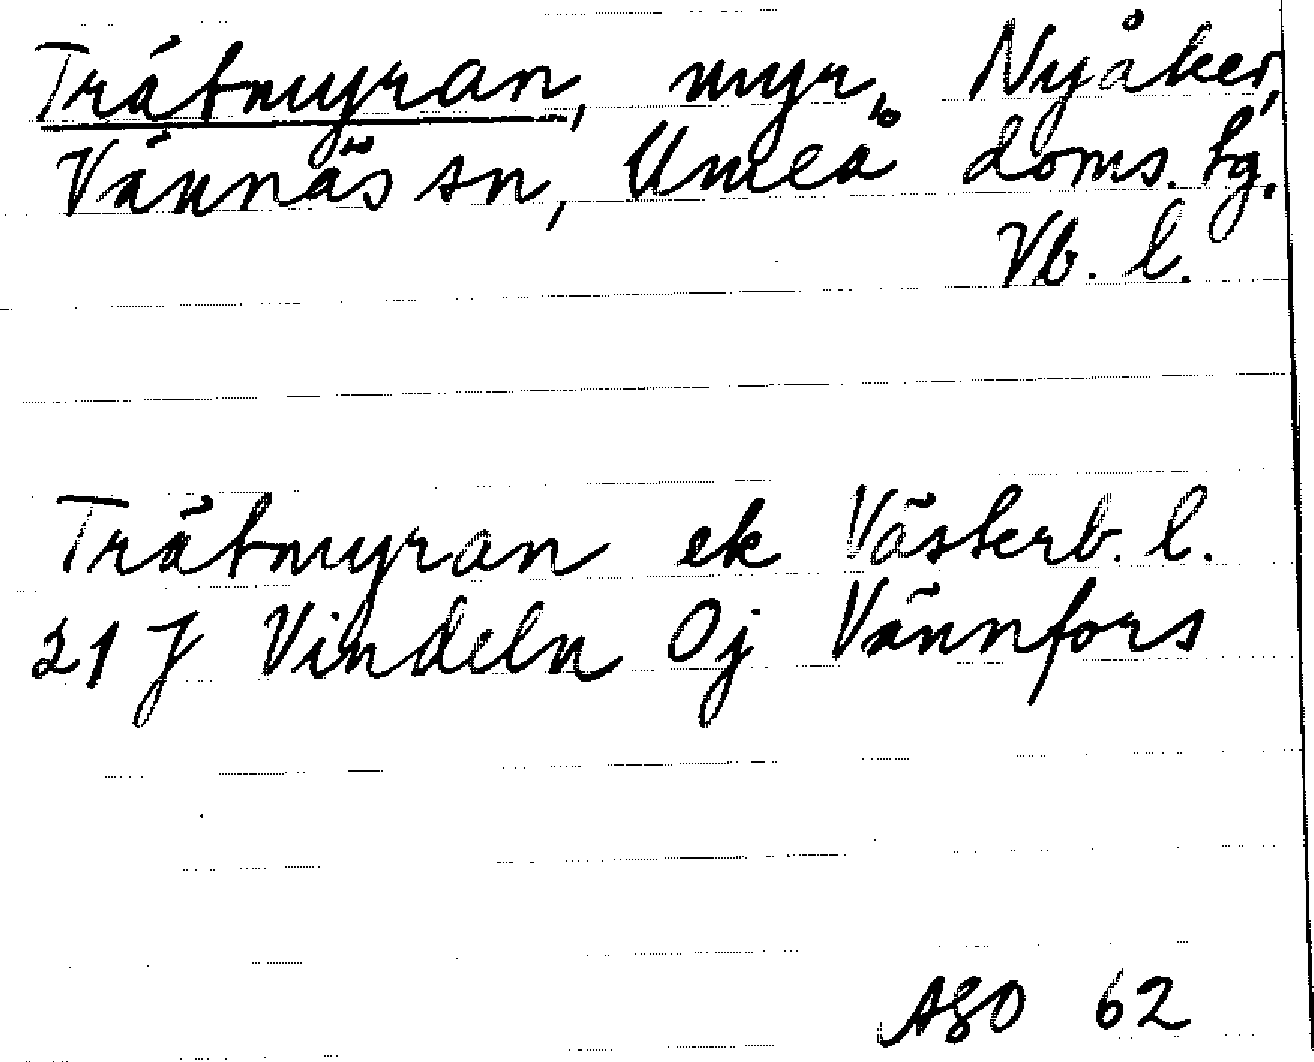 Trätmyran, myr, Nyåker,
Vännäs sn, Umeå doms. tg.
Vb. l.
Trätmyran ek Västerb. l.
21 J Vindeln Oj Vännfors
AGO 62